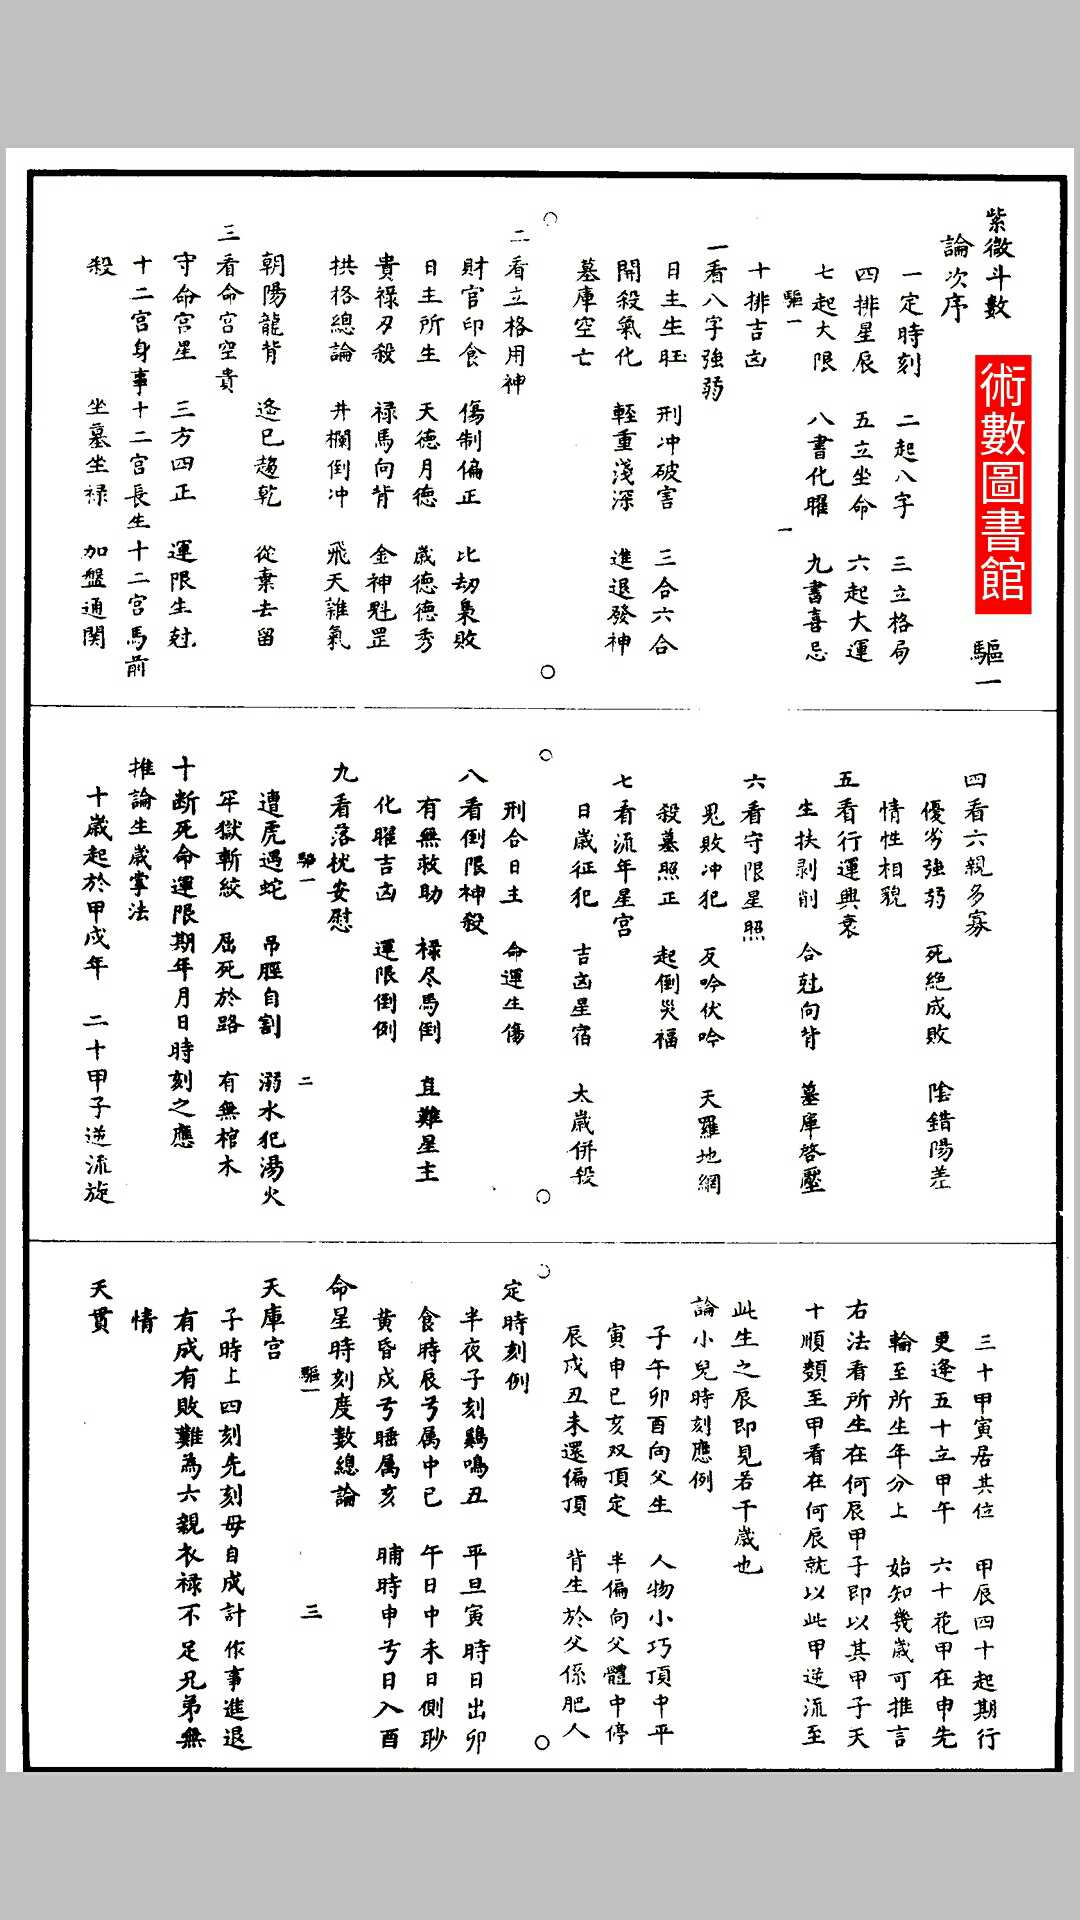 紫微斗數
術數圖書館
驅一
論次序
一定時刻 二起八字 三立格局
四排星辰 五立坐命 六起大運
七起大限 八書化曜 九書喜忌
驅一 一
十排吉凶
一看八字強弱
日主生旺 刑冲破害 三合六合
開殺氣化 輕重淺深 進退發神
墓庫空亡
二看立格用神
財官印食 傷制偏正 比劫梟敗
日主所生 天德月德 歲德德秀
貴祿刃殺 祿馬向背 金神魁罡
拱格總論 井欄倒冲 飛天雜氣
朝陽龍背 逄巳趨乾 從棄去留
三看命宮空貴
守命宮星 三方四正 運限生尅
十二宮身事 十二宮長生 十二宮馬前
殺 坐墓坐祿 加盤通関
四看六親多寡
優劣強弱 死絕成敗 陰錯陽差
情性相貌
五看行運興衰
生扶剥削 合尅向背 墓庫啓壓
六看守限星照
鬼敗冲犯 反吟伏吟 天羅地網
殺墓照正 起倒災福
七看流年星宮
日歲征犯 吉凶星宿 太歲併殺
刑合日主 命運生傷
八看倒限神殺
有無救助 祿尽馬倒 直難星主
化曜吉凶 運限倒例
九看落枕安慰
驅一 二
遭虎遇蛇 吊脛自割 溺水犯湯火
牢獄斬絞 屈死於路 有無棺木
十断死命運限期年月日時刻之應
推論生歲掌法
十歲起於甲戍年 二十甲子逆流旋
三十甲寅居其位 甲辰四十起期行
更逢五十立甲午 六十花甲在申先
輪至所生年分上 始知幾歲可推言
右法看所生在何辰甲子即以其甲子天
十順類至甲看在何辰就以此甲逆流至
此生之辰即見若干歲也
論小兒時刻應例
子午卯酉向父生 人物小巧頂中平
寅申巳亥双頂定 半偏向父體中停
辰戍丑未還偏頂 背生於父係肥人
定時刻例
半夜子刻鷄鳴丑 平旦寅時日出卯
食時辰兮属中巳 午日中未日側耖
黄昏戍兮睡属亥 晡時申兮日入酉
命星時刻度數總論
驅一 三
天庫宮
子時上四刻先刻母自成計作事進退
有成有敗難為六親衣祿不足兄弟無
情
天貫